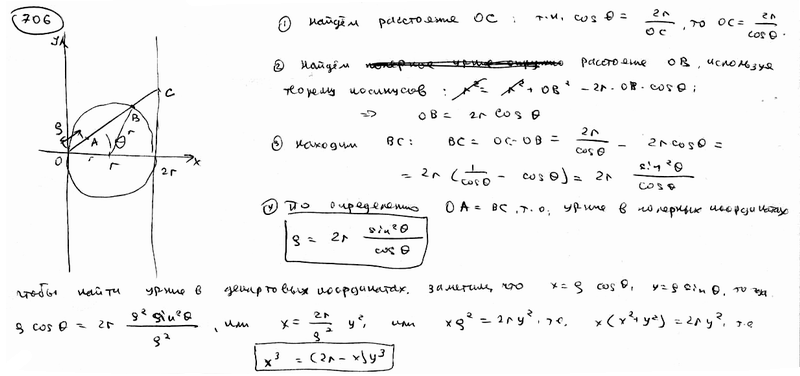 706
① Найдём расстояние OC : т.к. cos θ = 2r/OC, то OC = 2r/cos θ.
② Найдём расстояние OB, используя
теорему косинусов : r² = r² + OB² − 2r·OB·cos θ;
⇒ OB = 2r cos θ
③ Находим BC: BC = OC−OB = 2r/cos θ − 2r cos θ =
= 2r (1/cos θ − cos θ) = 2r sin²θ/cos θ
④ По определению OA = BC, т.о. ур-ние в полярных координатах
ρ = 2r sin²θ/cos θ
y
C
B
ρ
A
r
θ
O
r
r
2r
x
чтобы найти ур-ние в декартовых координатах, заметим, что x = ρ cos θ, y = ρ sin θ, тогда
ρ cos θ = 2r ρ² sin²θ/ρ², или x = 2r/ρ² y², или xρ² = 2ry², т.е. x(x²+y²) = 2ry², т.е
x³ = (2r − x)y³